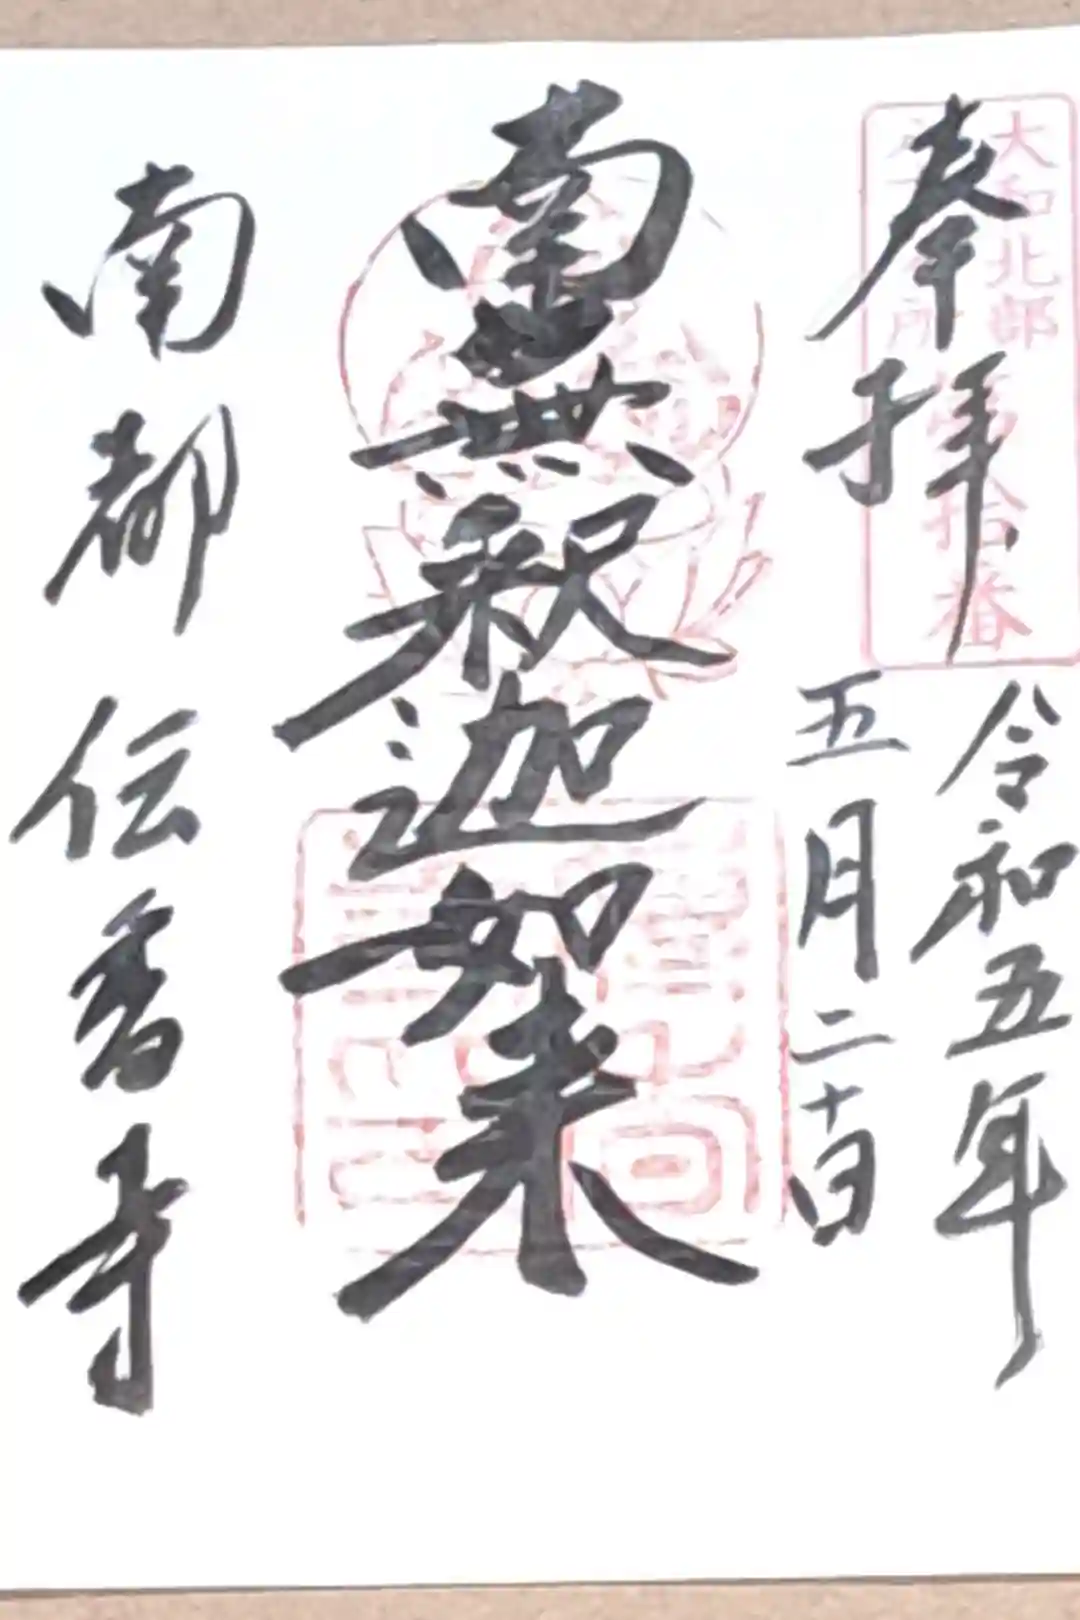 奉拝
大和北部
令和五年
五月二十日
南無釈迦如来
南都 伝香寺